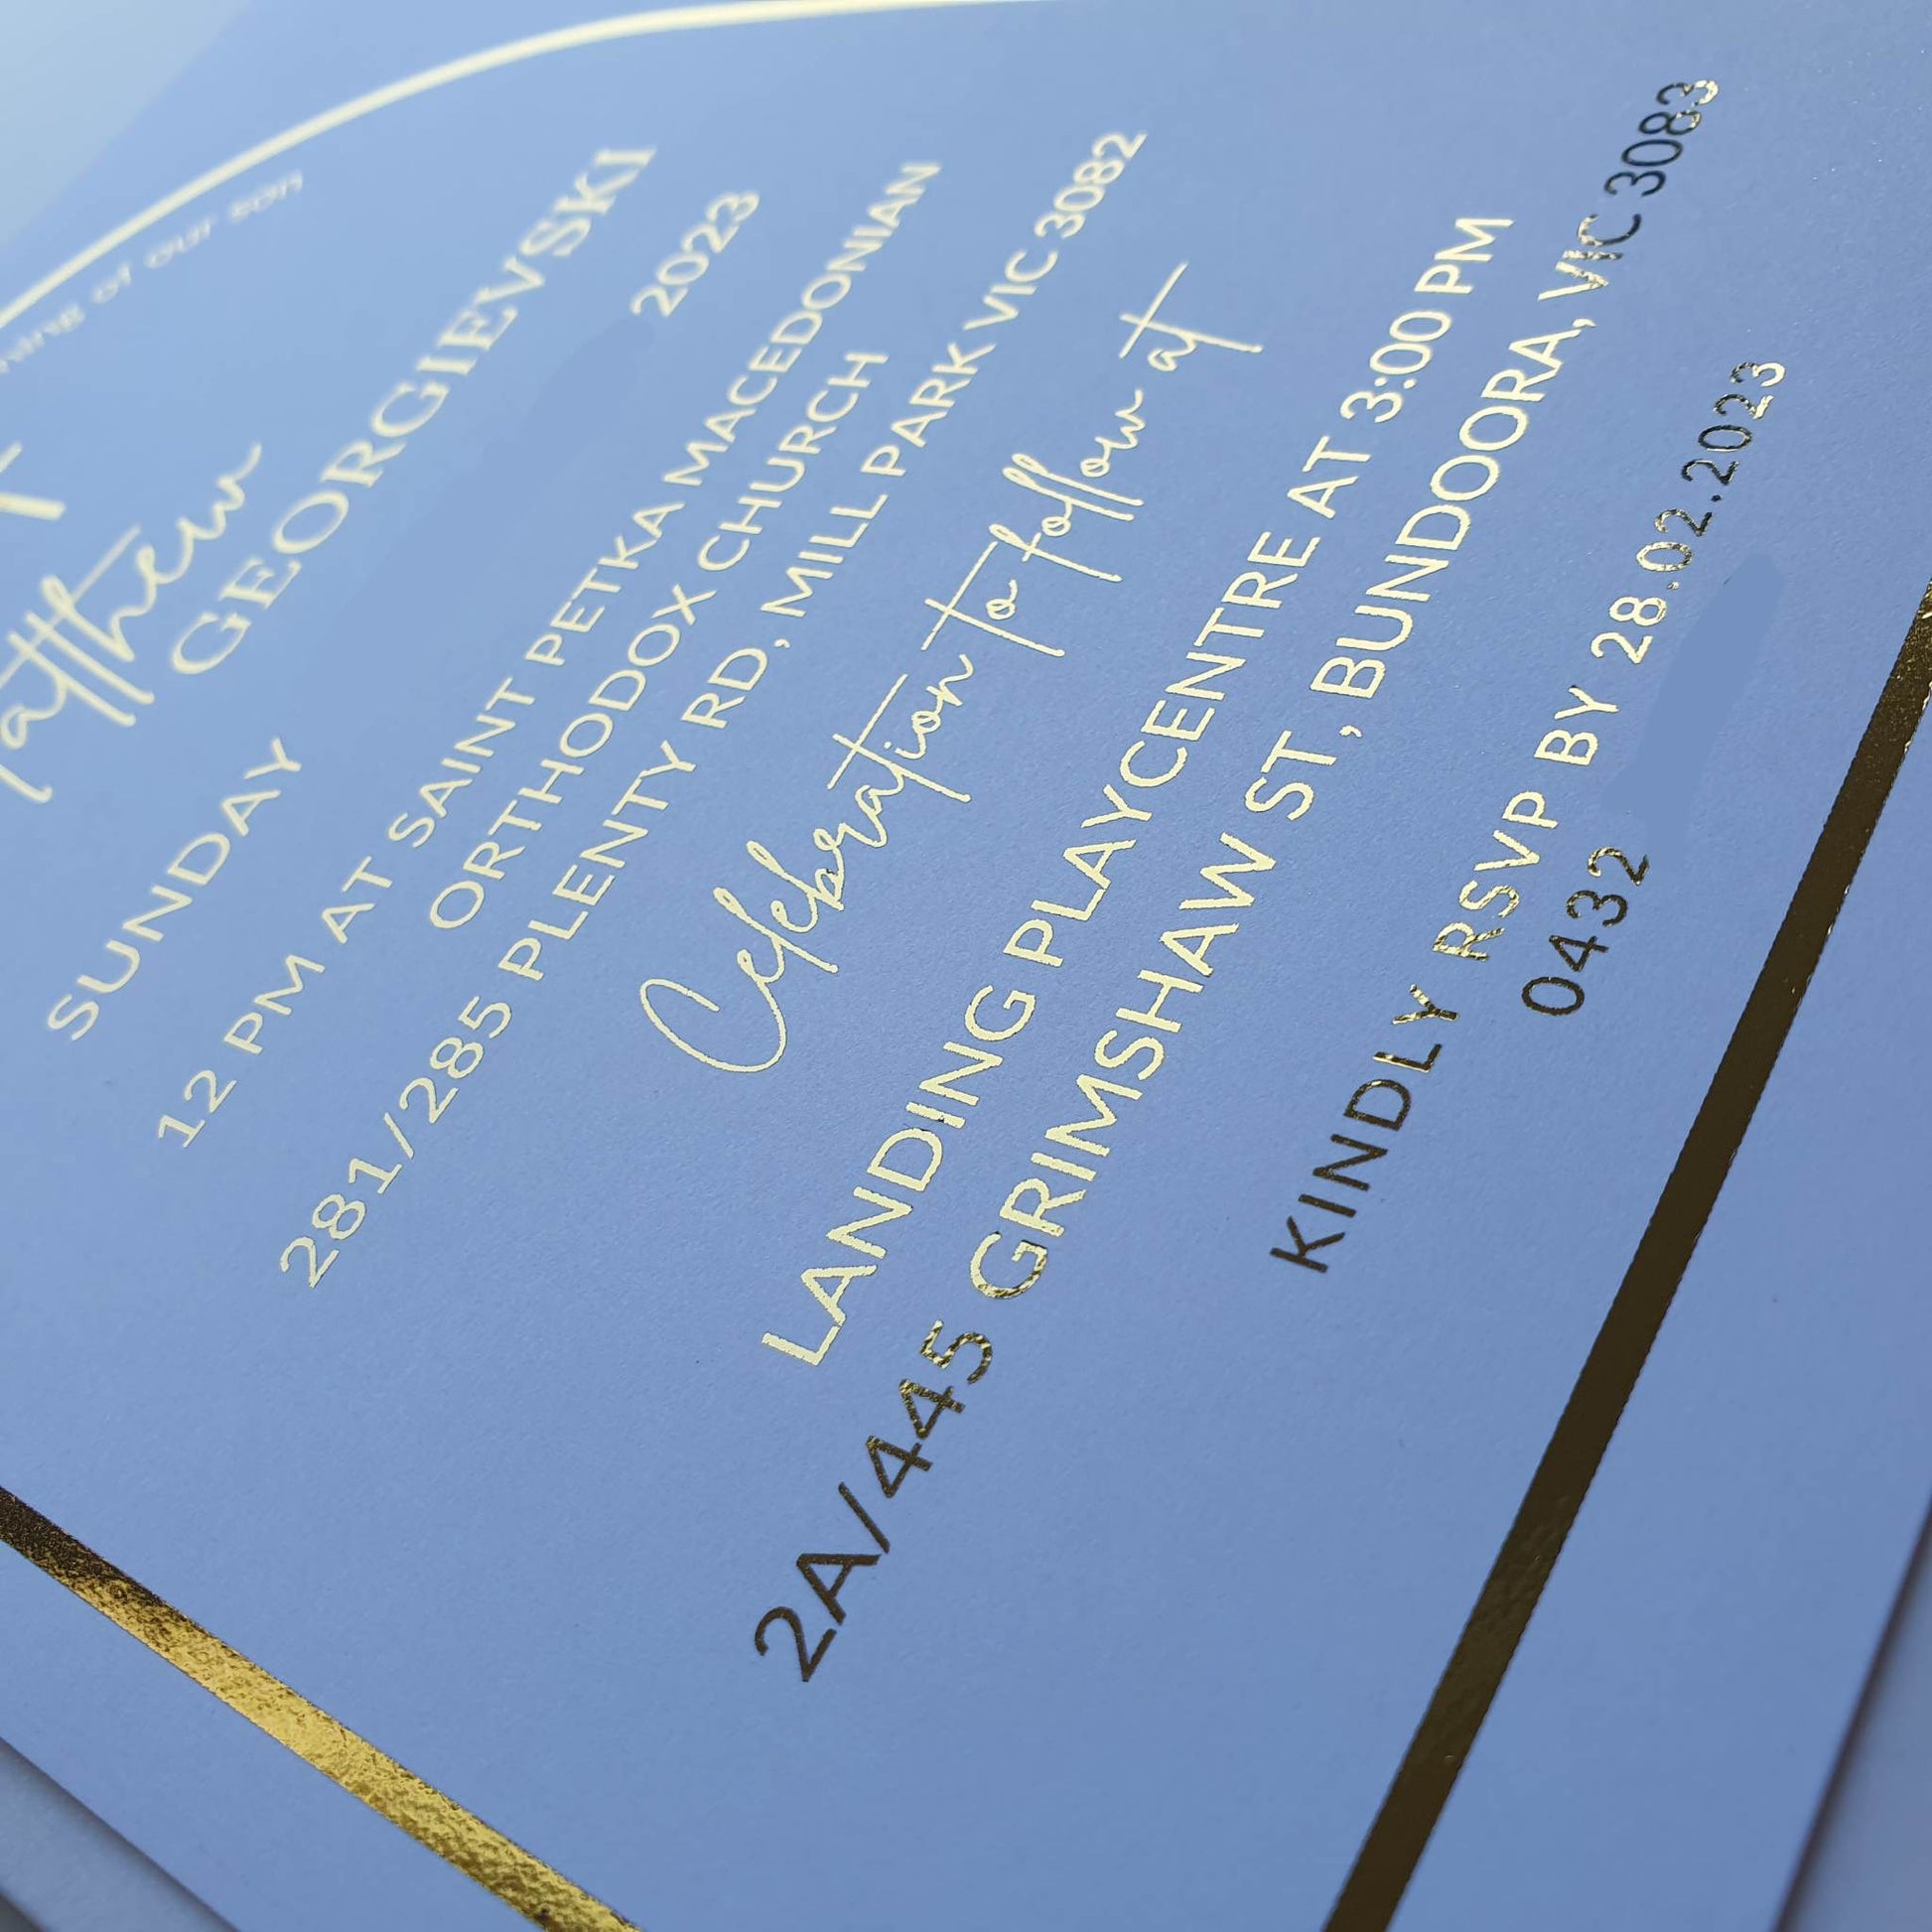 of our son
GEORGIEVSKI
SUNDAY 2023
12 PM AT SAINT PETKA MACEDONIAN
ORTHODOX CHURCH
281/285 PLENTY RD, MILL PARK VIC 3082
Celebration to follow at
LANDING PLAYCENTRE AT 3:00 PM
2A/445 GRIMSHAW ST, BUNDOORA, VIC 3083
KINDLY RSVP BY 28.02.2023
0432